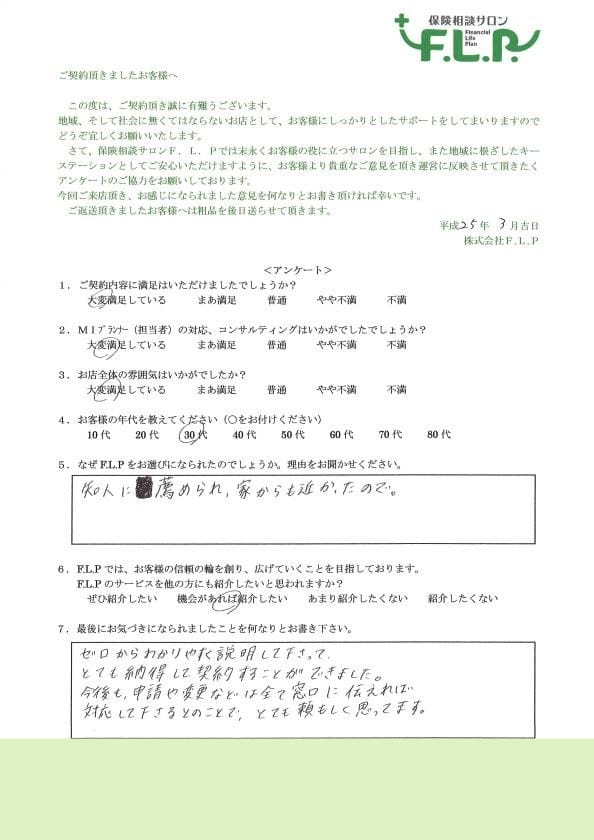 保険相談サロン
F.L.P.
Financial
Life
Plan
ご契約頂きましたお客様へ
この度は、ご契約頂き誠に有難うございます。
地域、そして社会に無くてはならないお店として、お客様にしっかりとしたサポートをしてまいりますので
どうぞ宜しくお願いいたします。
さて、保険相談サロンF．L．Pでは末永くお客様の役に立つサロンを目指し、また地域に根ざしたキー
ステーションとしてご安心いただけますように、お客様より貴重なご意見を頂き運営に反映させて頂きたく
アンケートのご協力をお願いしております。
今回ご来店頂き、お感じになられました意見を何なりとお書き頂ければ幸いです。
ご返送頂きましたお客様へは粗品を後日送らせて頂きます。
平成25年 3月吉日
株式会社F.L.P
＜アンケート＞
1．ご契約内容に満足はいただけましたでしょうか？
大変満足している まあ満足 普通 やや不満 不満
2．MIプランナー（担当者）の対応、コンサルティングはいかがでしたでしょうか？
大変満足している まあ満足 普通 やや不満 不満
3．お店全体の雰囲気はいかがでしたか？
大変満足している まあ満足 普通 やや不満 不満
4．お客様の年代を教えてください（○をお付けください）
10代 20代 30代 40代 50代 60代 70代 80代
5．なぜF.L.Pをお選びになられたのでしょうか。理由をお聞かせください。
知人に薦められ、家からも近かったので。
6．F.L.Pでは、お客様の信頼の輪を創り、広げていくことを目指しております。
F.L.Pのサービスを他の方にも紹介したいと思われますか？
ぜひ紹介したい 機会があれば紹介したい あまり紹介したくない 紹介したくない
7．最後にお気づきになられましたことを何なりとお書き下さい。
ゼロからわかりやすく説明して下さって、
とても納得して契約することができました。
今後も、申請や変更などは全て窓口に伝えれば
対応して下さるとのことで、とても頼もしく思ってます。